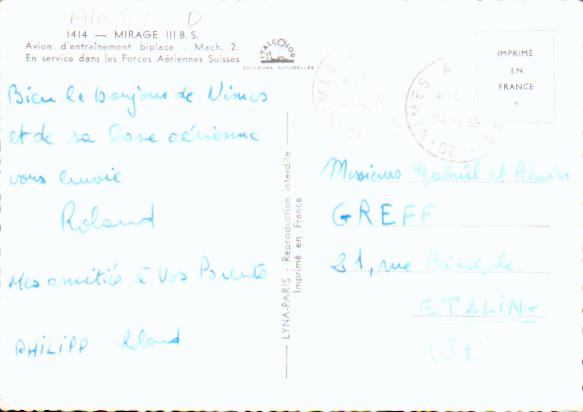 1414 — MIRAGE III B. S.
Avion d'entraînement biplace - Mach. 2.
En service dans les Forces Aériennes Suisses
ITALCOLOR
COULEURS NATURELLES
IMPRIMÉ
EN
FRANCE
30 - NIMES
30 - NIMES
Bien le bonjour de Nimes
et de sa base aérienne
vous envoie
Roland
Mes amitiés à Vos Parents
PHILIPP Roland
LYNA-PARIS - Reproduction interdite
Imprimé en France
Messieurs Gabriel et Alain
GREFF
81, rue Principale
ETZLING
(57)